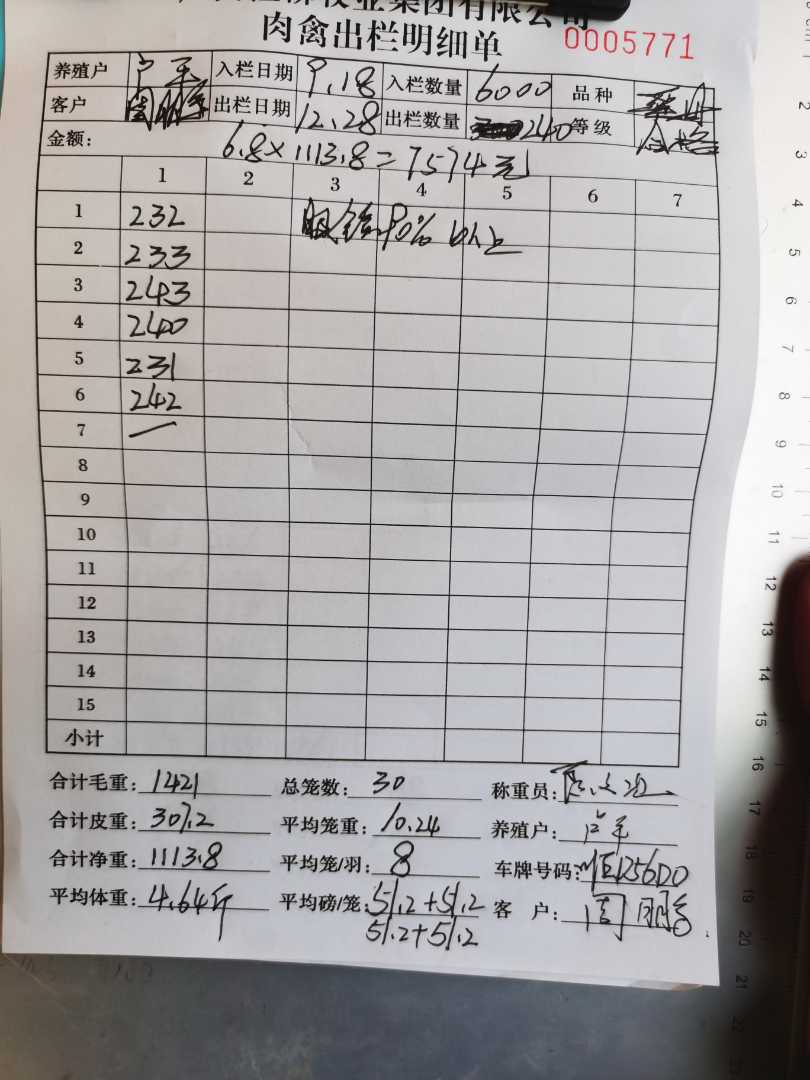 牧业集团有限公司
肉禽出栏明细单 0005771
养殖户 入栏日期 9.18 入栏数量 6000 品种
客户 周鹏 出栏日期 12.28 出栏数量 240 等级 合格
金额: 6.8×1113.8=7574元
1 2 3 4 5 6 7
1 232 90%以上
2 233
3 243
4 240
5 231
6 242
7 —
8
9
10
11
12
13
14
15
小计
合计毛重: 1421 总笼数: 30 称重员:
合计皮重: 307.2 平均笼重: 10.24 养殖户:
合计净重: 1113.8 平均笼/羽: 8 车牌号码:
平均体重: 4.64斤 平均磅/笼: 51.2+51.2 客 户: 周鹏
51.2+51.2